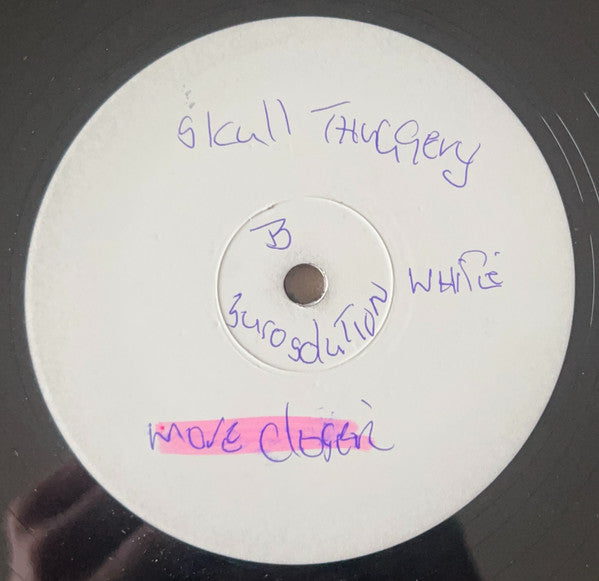 Skull THUGGERY
B
EUROSOLUTION
WHITE
MOVE CLOSER